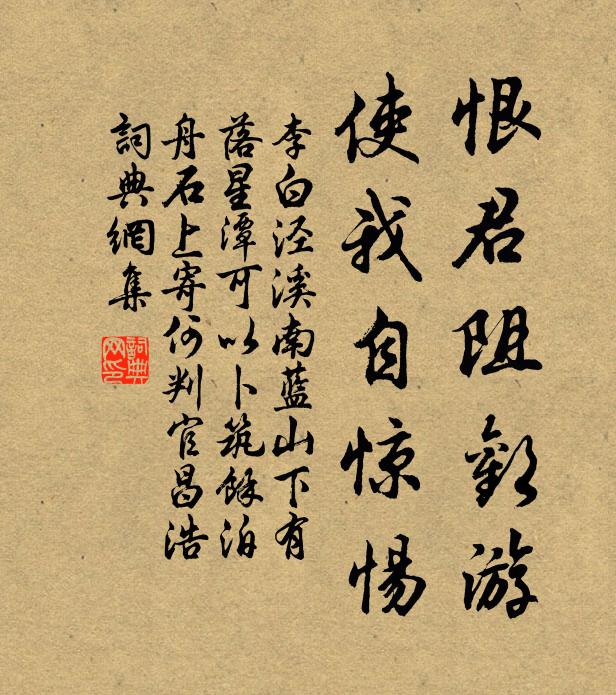 恨君阻歡游
使我自惊惕
李白泾溪南藍山下有
落星潭可以卜筑餘泊
舟石上寄何判官昌浩
詞典網集
詞典
网印